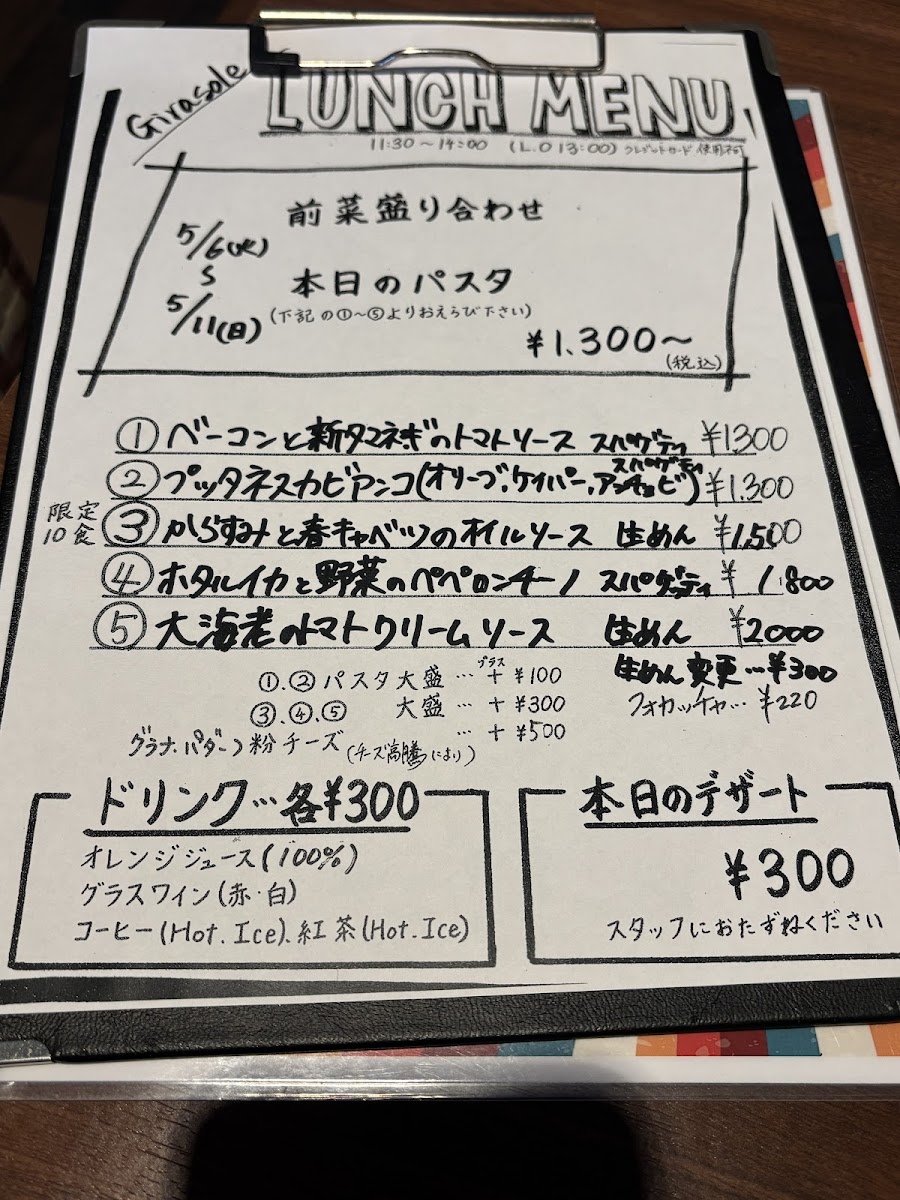 Girasole
LUNCH MENU
11:30～14:00 (L.O 13:00) クレジットカード 使用不可
前菜盛り合わせ
5/6(火)
～
5/11(日)
本日のパスタ
(下記の①～⑤よりおえらび下さい)
¥1.300～
(税込)
① ベーコンと新タマネギのトマトソース スパゲティ ¥1300
② プッタネスカビアンコ(オリーブ,ケイパー,アンチョビ) スパゲティ ¥1.300
限定10食 ③ からすみと春キャベツのオイルソース 生めん ¥1,500
④ ホタルイカと野菜のペペロンチーノ スパゲッティ ¥1.800
⑤ 大海老のトマトクリームソース 生めん ¥2000
①.② パスタ大盛 … プラス + ¥100
生めん変更…¥300
③.④.⑤ 大盛 … + ¥300
フォカッチャ… ¥220
グラナ.パダーノ粉チーズ (チーズ高騰により) … + ¥500
ドリンク…各¥300
オレンジジュース(100%)
グラスワイン(赤・白)
コーヒー(Hot.Ice)、紅茶(Hot.Ice)
本日のデザート
¥300
スタッフにおたずねください